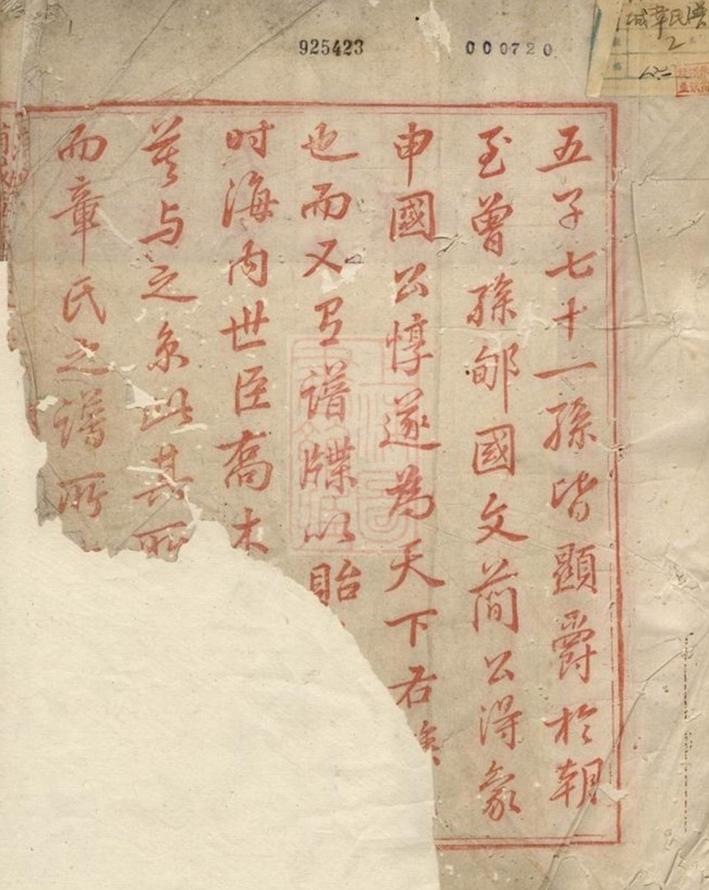 925423
000720
城章氏譜
2
五子七十一孫皆顯爵於朝
至曾孫郇國文簡公得象
申國公惇遂為天下右族
也而又有譜牒以貽
时海内世臣喬木
莫与之京此其所
而章氏之譜所